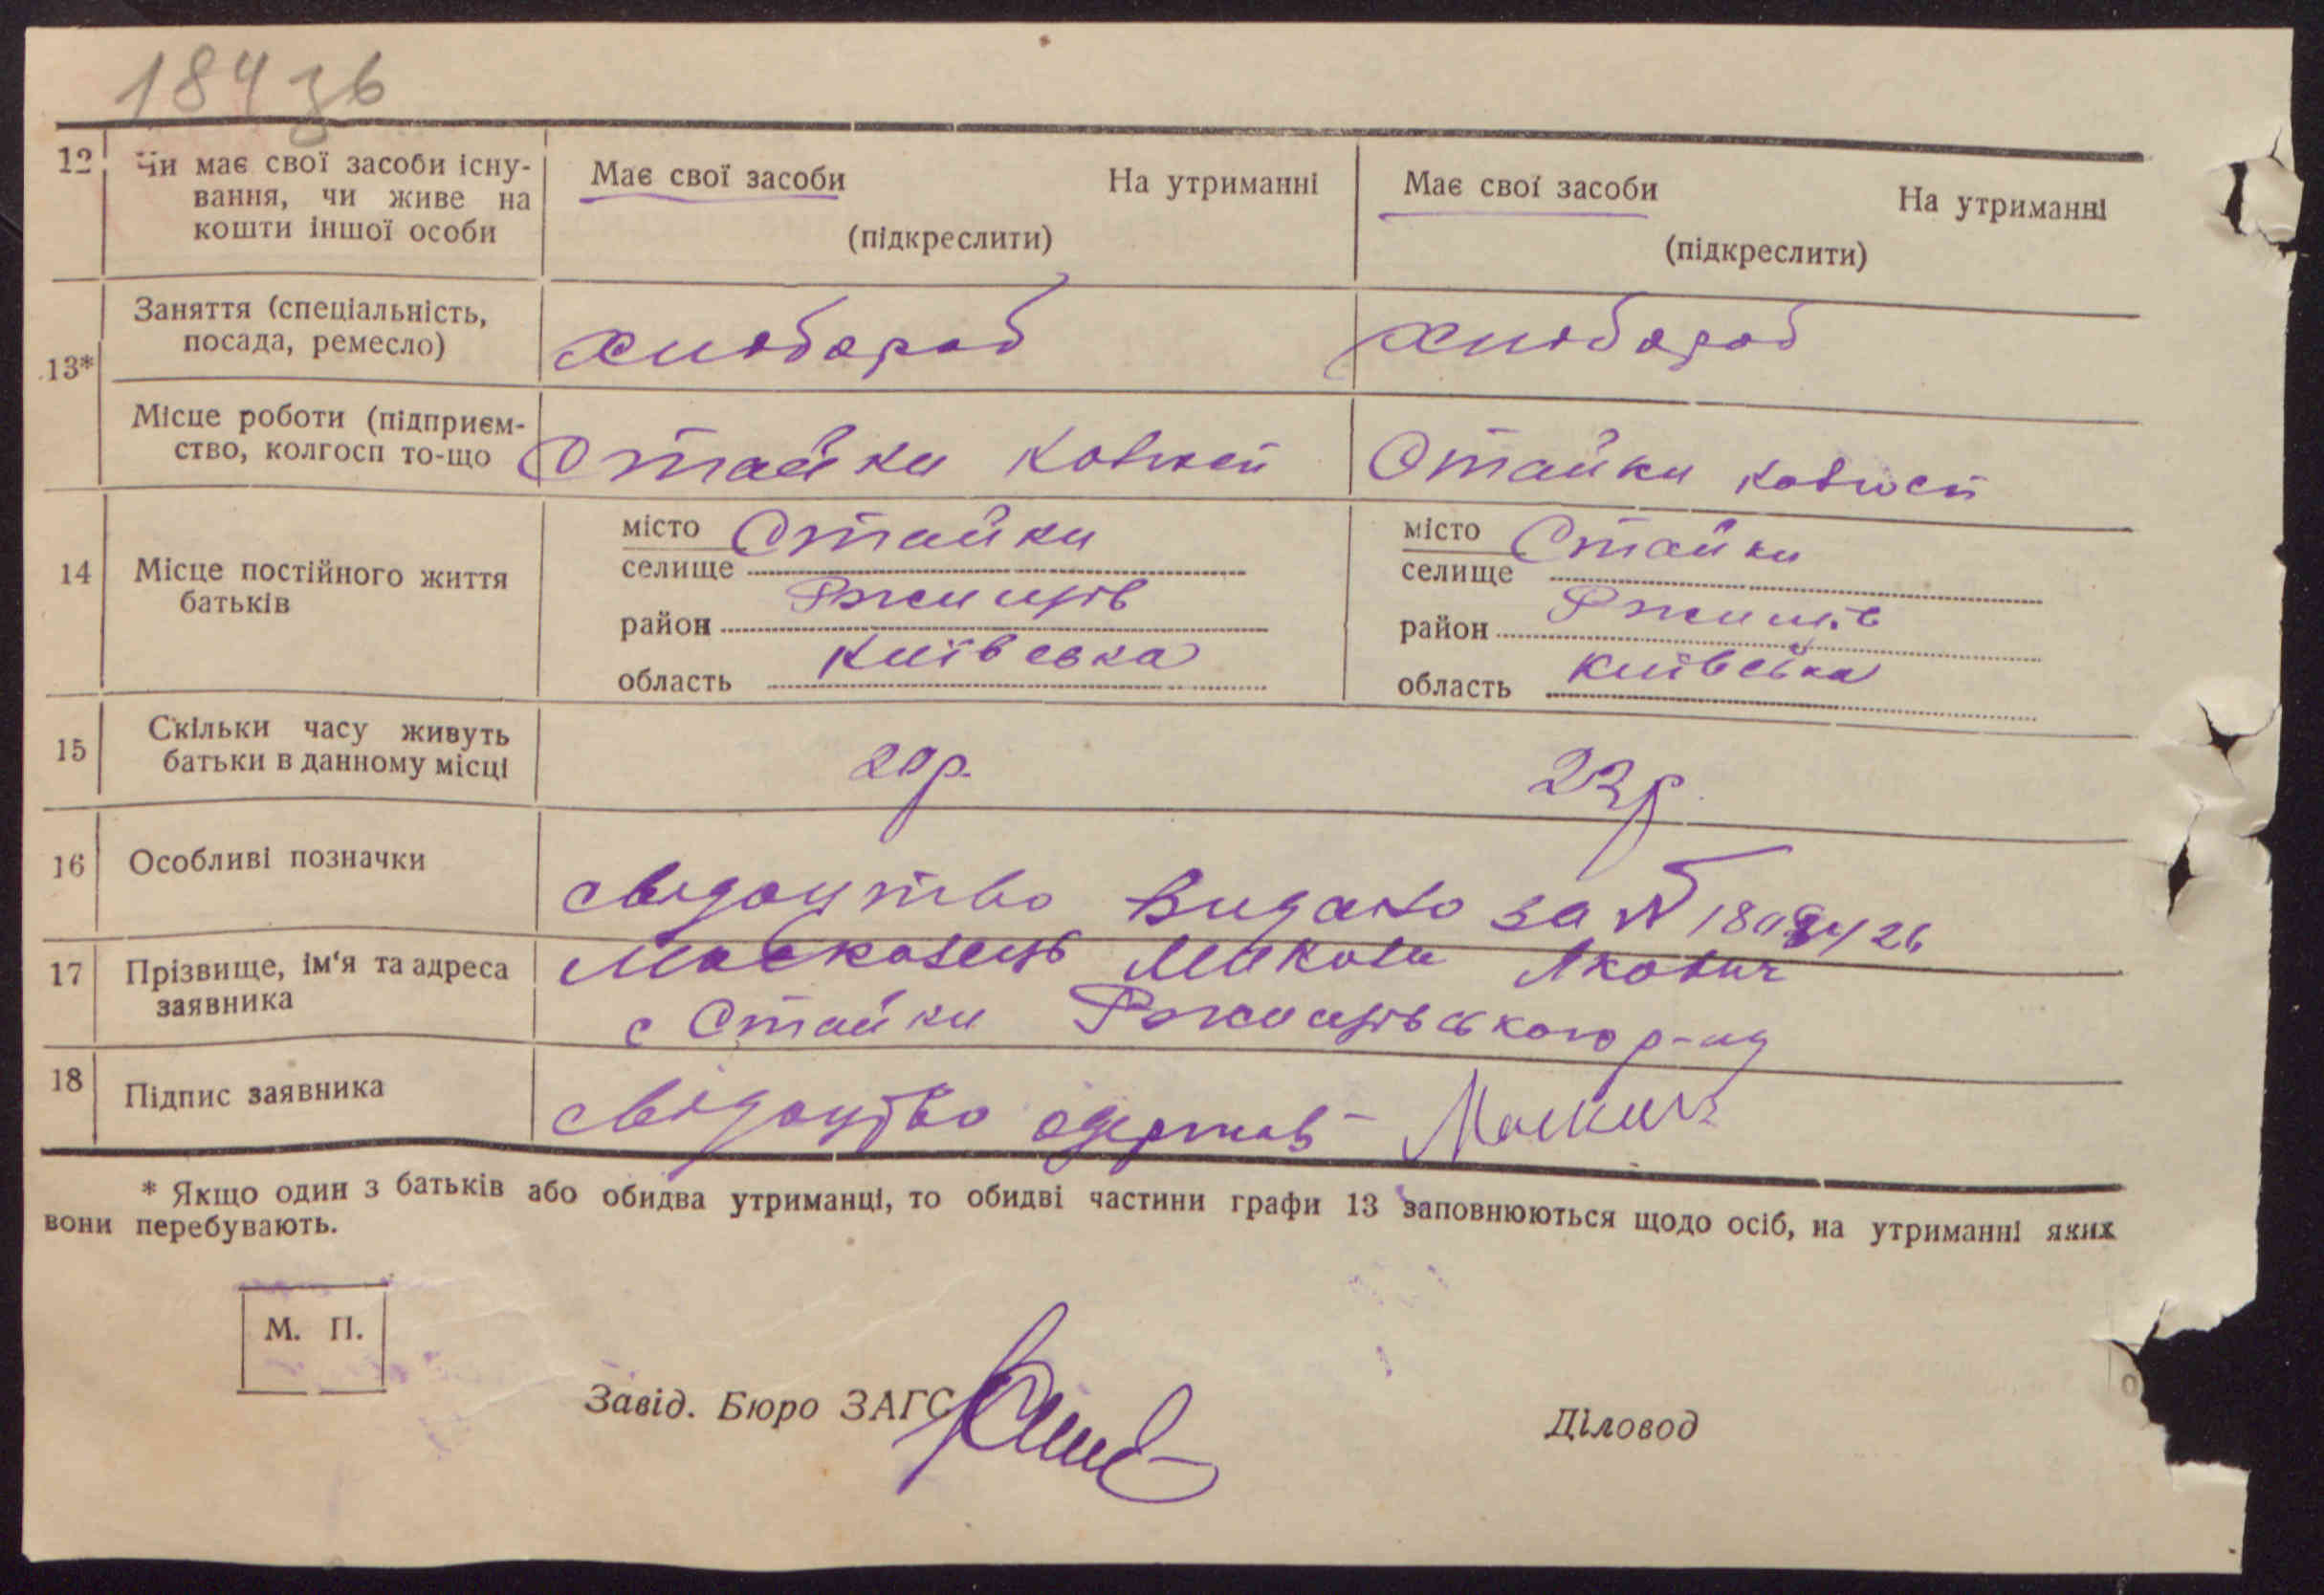 184 зв
12 Чи має свої засоби існу-
вання, чи живе на
кошти іншої особи
Має свої засоби На утриманні
(підкреслити)
Має свої засоби На утриманні
(підкреслити)
13*
Заняття (спеціальність,
посада, ремесло)
хлібороб
хлібороб
Місце роботи (підприєм-
ство, колгосп то-що
Стайки
Стайки
14 Місце постійного життя
батьків
місто Стайки
селище
район Ржищів
область Київська
місто Стайки
селище
район Ржищів
область Київська
15 Скільки часу живуть
батьки в данному місці
20р.
22р.
16 Особливі позначки
свідоцтво видано за №
17 Прізвище, ім'я та адреса
заявника
Микола Якович
с Стайки Ржищівського р-ну
18 Підпис заявника
свідоцтво одержав
* Якщо один з батьків або обидва утриманці, то обидві частини графи 13 заповнюються щодо осіб, на утриманні яких
вони перебувають.
М. П.
Завід. Бюро ЗАГС
Діловод